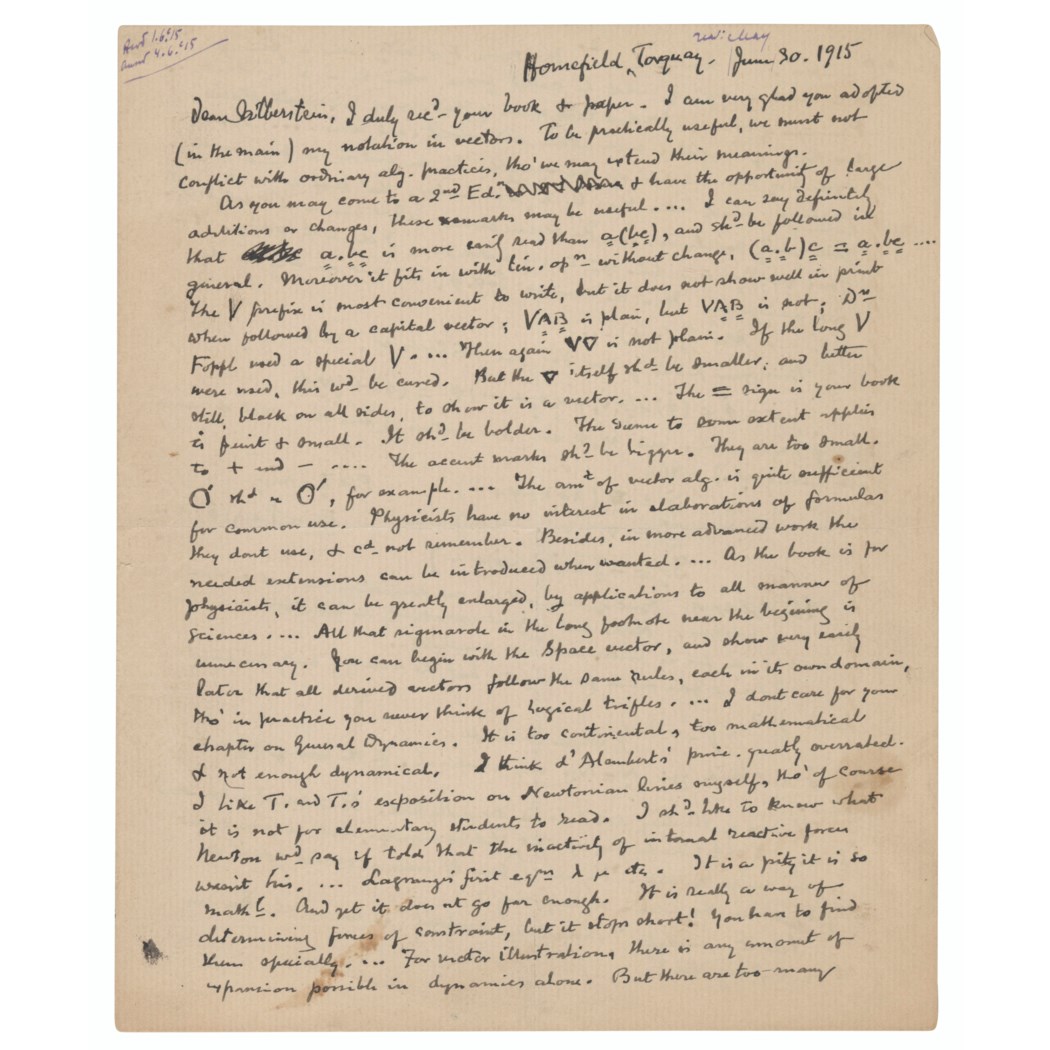 Recd 1.6.15
answd 4.6.15
recte: May
Homefield, Torquay. June 30. 1915
Dear Silberstein, I duly recd your book & paper. I am very glad you adopted
(in the main) my notation in vectors. To be practically useful, we must not
conflict with ordinary alg. practices, tho' we may extend their meanings.
As you may come to a 2nd Ed. & have the opportunity of large
additions or changes, these remarks may be useful.... I can say definitely
that a.bc is more easily read than a(bc), and shd be followed in
general. Moreover it fits in with lin. opn without change, (a.b)c = a.bc ....
The V prefix is most convenient to write, but it does not show well in print
when followed by a capital vector; VAB is plain, but VAB is not; Dr
Foppl used a special V.... Then again V∇ is not plain. If the long V
were used, this wd be cured. But the ∇ itself shd be smaller; and better
still, black on all sides, to show it is a vector.... The = sign is your book
is faint & small. It shd be bolder. The same to some extent applies
to + and − .... The accent marks shd be bigger. They are too small.
O' shd be O', for example.... The amt of vector alg. is quite sufficient
for common use. Physicists have no interest in elaborations of formulas
they dont use, & cd not remember. Besides, in more advanced work the
needed extensions can be introduced when wanted.... As the book is for
physicists, it can be greatly enlarged, by applications to all manner of
sciences.... All that rigmarole in the long footnote near the begining is
unnecessary. You can begin with the Space vector, and show very easily
later that all derived vectors follow the same rules, each in its own domain,
tho' in practice you never think of logical trifles.... I dont care for your
chapter on General Dynamics. It is too continental, too mathematical
& not enough dynamical. I think d'Alambert's princ. greatly overrated.
I like T. and T.'s exposition on Newtonian lines myself, tho' of course
it is not for elementary students to read. I shd like to know what
Newton wd say if told that the inactivity of internal reactive forces
wasn't his.... Lagrange's first eqns λ μ etc. It is a pity it is so
mathl. And yet it does not go far enough. It is really a way of
determining forces of constraint, but it stops short! You have to find
them specially.... For vector illustration, there is any amount of
expansion possible in dynamics alone. But there are too many